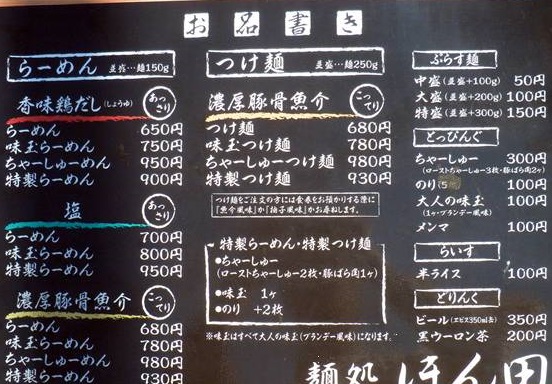 お品書き
らーめん 並盛…麺150g
香味鶏だし(しょうゆ) あっさり
らーめん 650円
味玉らーめん 750円
ちゃーしゅーめん 950円
特製らーめん 900円
塩 あっさり
らーめん 700円
味玉らーめん 800円
特製らーめん 950円
濃厚豚骨魚介 こってり
らーめん 680円
味玉らーめん 780円
ちゃーしゅーめん 980円
特製らーめん 930円
つけ麺 並盛…麺250g
濃厚豚骨魚介 こってり
つけ麺 680円
味玉つけ麺 780円
ちゃーしゅーつけ麺 980円
特製つけ麺 930円
つけ麺をご注文の方には食券をお預かりする際に
「魚介風味」か「柚子風味」かお尋ねします。
特製らーめん・特製つけ麺
●ちゃーしゅー
(ローストちゃーしゅー2枚・豚ばら肉1ヶ)
●味玉 1ヶ
●のり +2枚
※味玉はすべて大人の味玉(ブランデー風味)になります。
ぷらす麺
中盛(並盛+100g) 50円
大盛(並盛+200g) 100円
特盛(並盛+300g) 150円
とっぴんぐ
ちゃーしゅー 300円
(ローストちゃーしゅー3枚・豚ばら肉2ヶ)
のり(5 100円
大人の味玉 100円
(1ヶ・ブランデー風味)
メンマ 100円
らいす
半ライス 100円
どりんく
ビール(ヱビス350ml缶) 350円
黒ウーロン茶 200円
麺処 ほん田